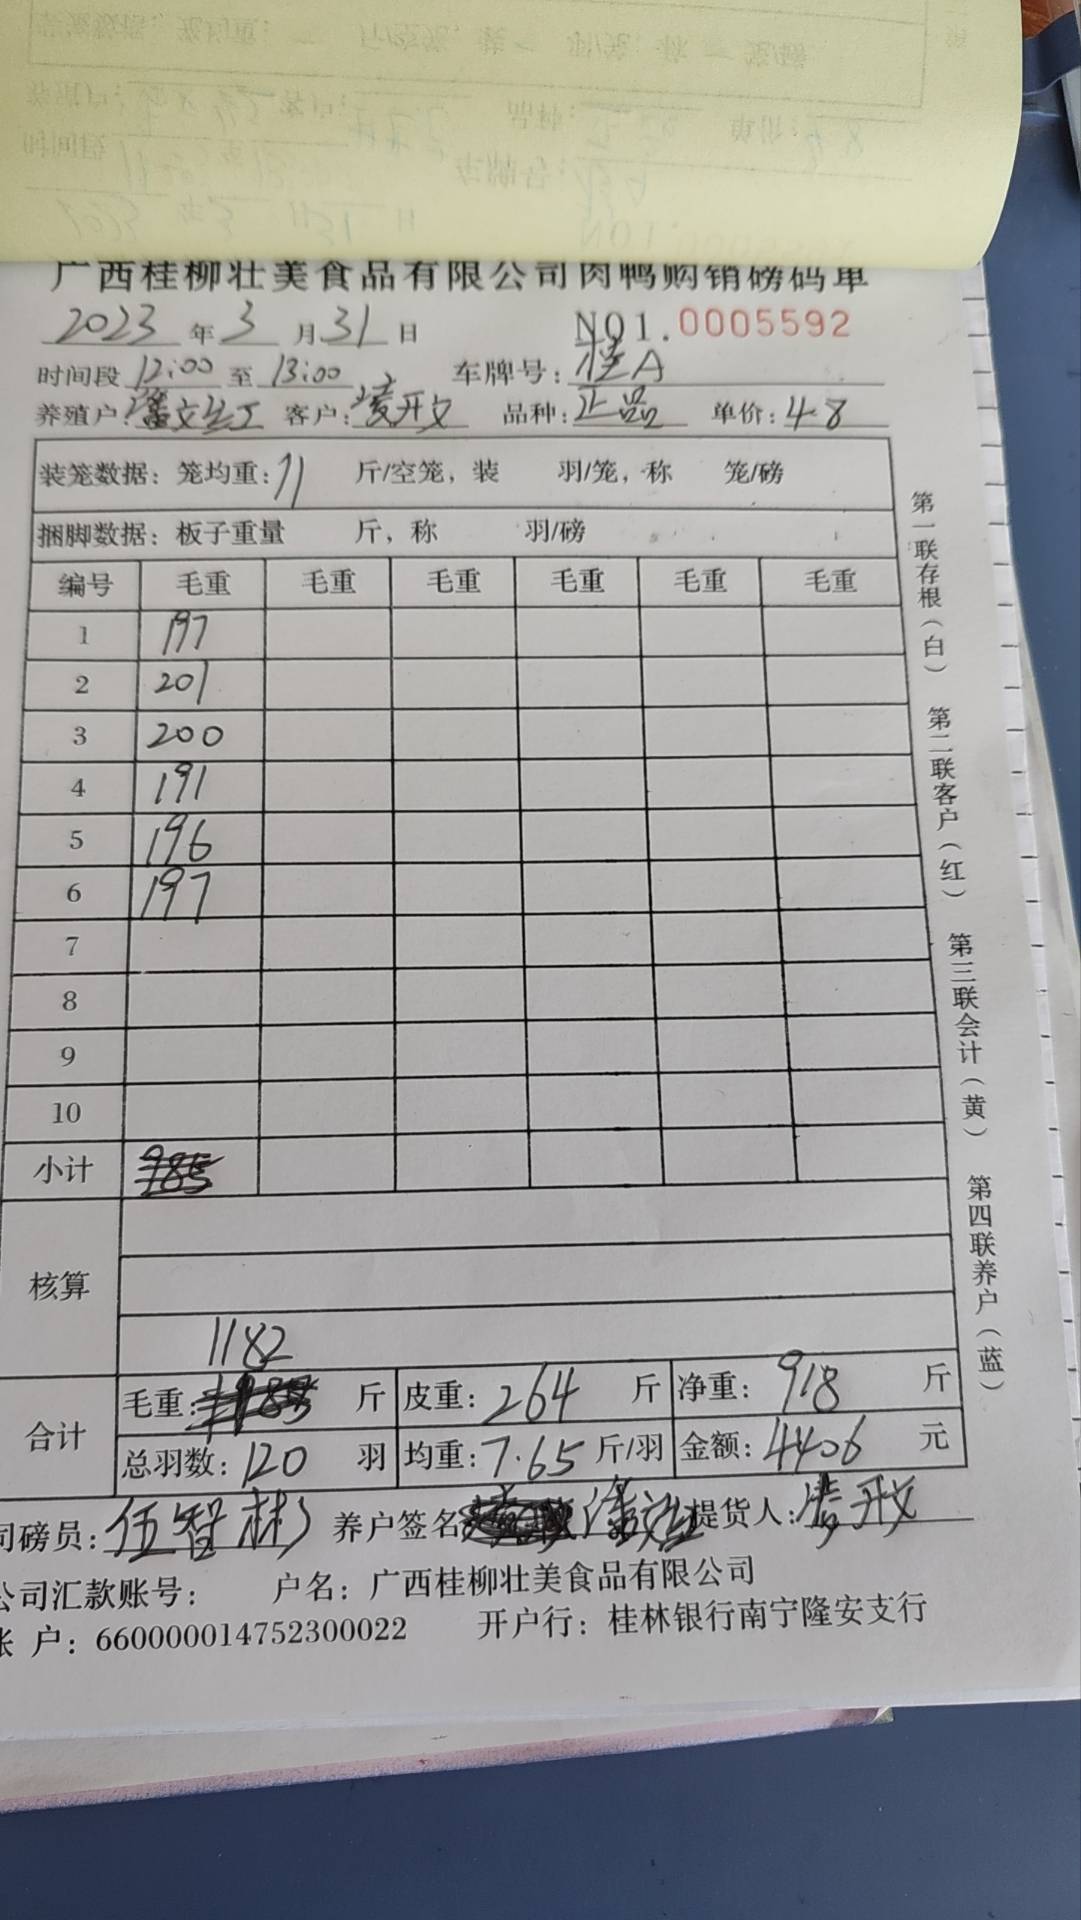 广西桂柳壮美食品有限公司肉鸭购销磅码单
2023 年 3 月 31 日 NO1.0005592
时间段 12:00 至 13:00 车牌号: 桂A
养殖户: 潘文 客户: 凌开文 品种: 正品 单价: 4.8
装笼数据: 笼均重: 11 斤/空笼, 装 羽/笼, 称 笼/磅
捆脚数据: 板子重量 斤, 称 羽/磅
编号 毛重 毛重 毛重 毛重 毛重 毛重
1 197
2 201
3 200
4 191
5 196
6 197
7
8
9
10
小计 985
核算
1182
合计 毛重: 斤 皮重: 264 斤 净重: 918 斤
总羽数: 120 羽 均重: 7.65 斤/羽 金额: 4406 元
司磅员: 伍智彬 养户签名 潘文 提货人: 凌开文
公司汇款账号: 户名: 广西桂柳壮美食品有限公司
账 户: 660000014752300022 开户行: 桂林银行南宁隆安支行
第一联存根(白) 第二联客户(红) 第三联会计(黄) 第四联养户(蓝)